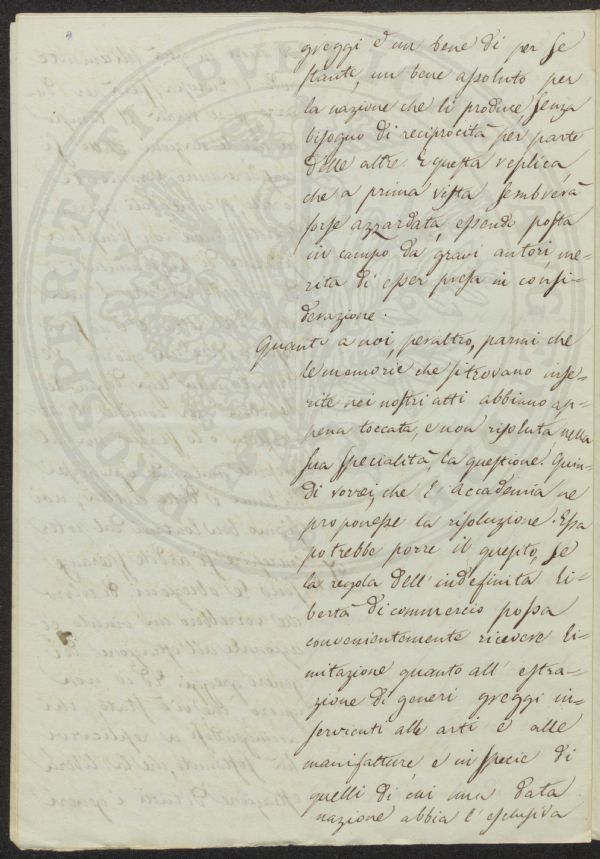 greggi è un bene di per se
stante, un bene assoluto per
la nazione che li produce senza
bisogno di reciprocità per parte
delle altre. E questa replica
che a prima vista sembrerà
forse azzardata, essendo posta
in campo da gravi autori, me=
rita di esser presa in consi=
derazione.
Quanto a noi, peraltro, parmi che
le memorie, che si trovano inse=
rite nei nostri atti abbiano ap=
pena toccata, e non risoluta nella
sua specialità, la questione. Quin=
di vorrei, che l'Accademia ne
proponesse la risoluzione. Essa
potrebbe porre il quesito, se
la regola dell'indefinita li=
bertà di commercio possa
convenientemente ricevere li=
mitazione quanto all'estra=
zione di generi greggi in=
servienti alle arti e alle
manifatture e in specie di
quelli di cui una data
nazione abbia l'esclusiva
PROSPERITATI PUBLICAE